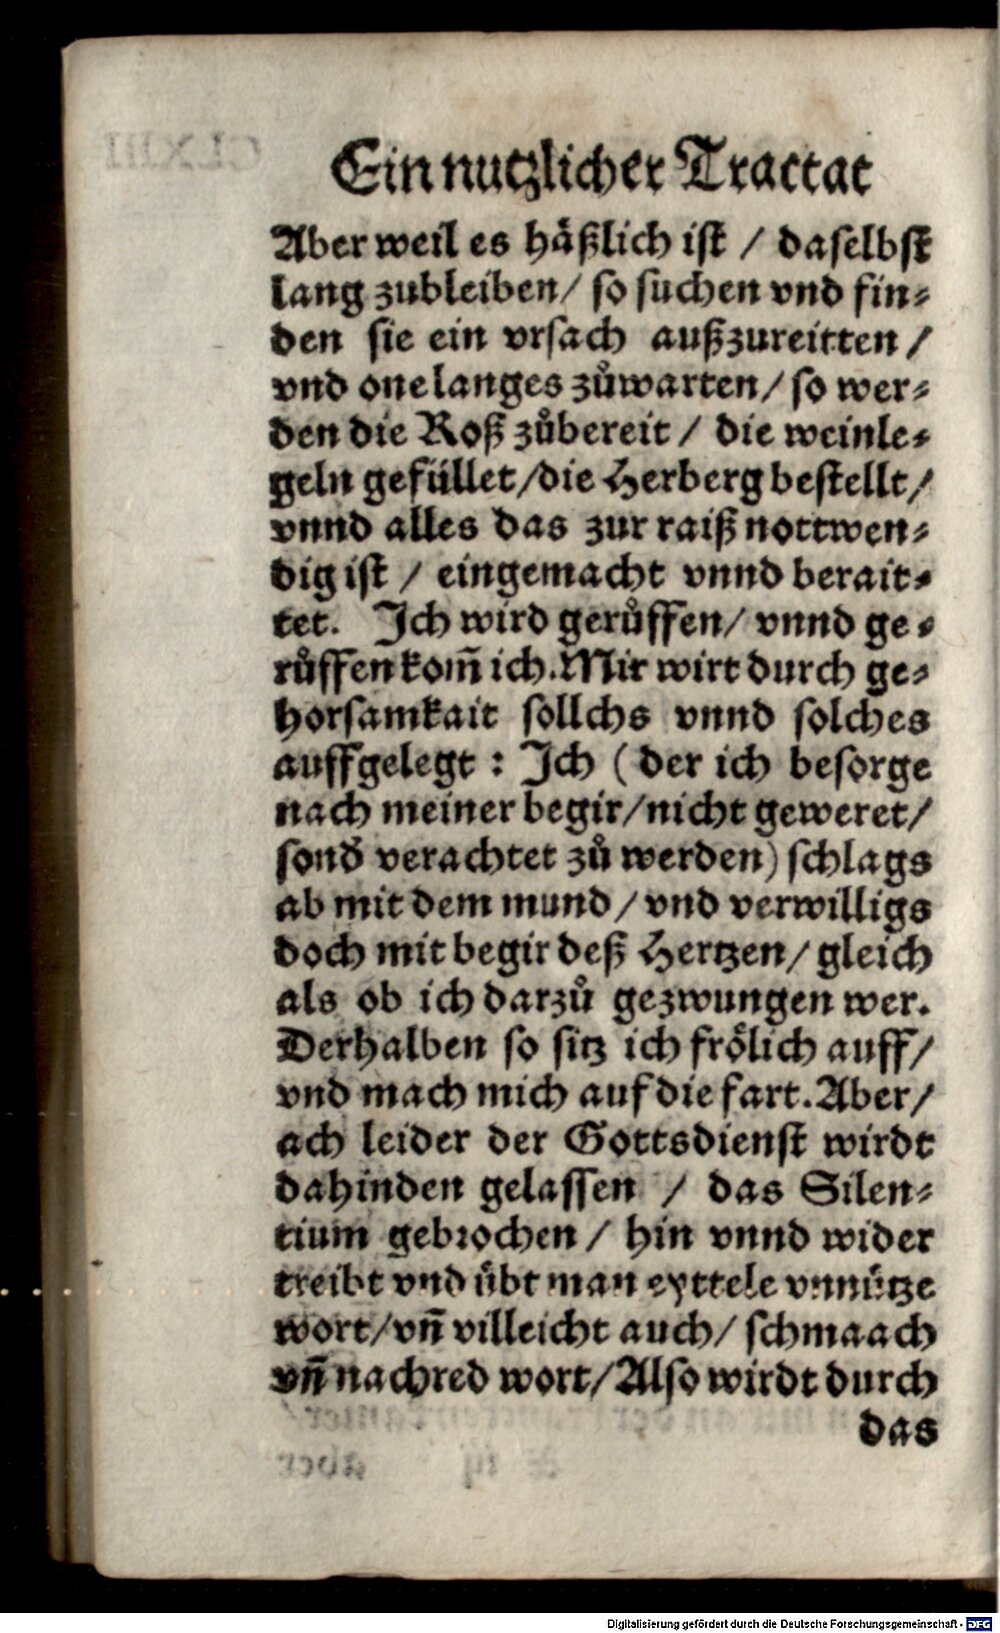 Ein nutzlicher Tractat
Aber weil es häßlich ist / daselbst
lang zubleiben / so suchen vnd fin⸗
den sie ein vrsach außzureitten /
vnd one langes zůwarten / so wer⸗
den die Roß zůbereit / die weinle⸗
geln gefüllet / die Herberg bestellt /
vnnd alles das zur raiß nottwen⸗
dig ist / eingemacht vnnd berait⸗
tet. Ich wird gerůffen / vnnd ge⸗
růffen kom̄ ich. Mir wirt durch ge⸗
horsamkait sollchs vnnd solches
auffgelegt : Ich ( der ich besorge
nach meiner begir / nicht geweret /
sond̃ verachtet zů werden) schlags
ab mit dem mund / vnd verwilligs
doch mit begir deß Hertzen / gleich
als ob ich darzů gezwungen wer.
Derhalben so sitz ich frölich auff /
vnd mach mich auf die fart. Aber /
ach leider der Gottsdienst wirdt
dahinden gelassen / das Silen⸗
tium gebrochen / hin vnnd wider
treibt vnd übt man eyttele vnnütze
wort / vn̄ villeicht auch / schmaach
vn̄ nachred wort / Also wirdt durch
das
Digitalisierung gefördert durch die Deutsche Forschungsgemeinschaft - DFG